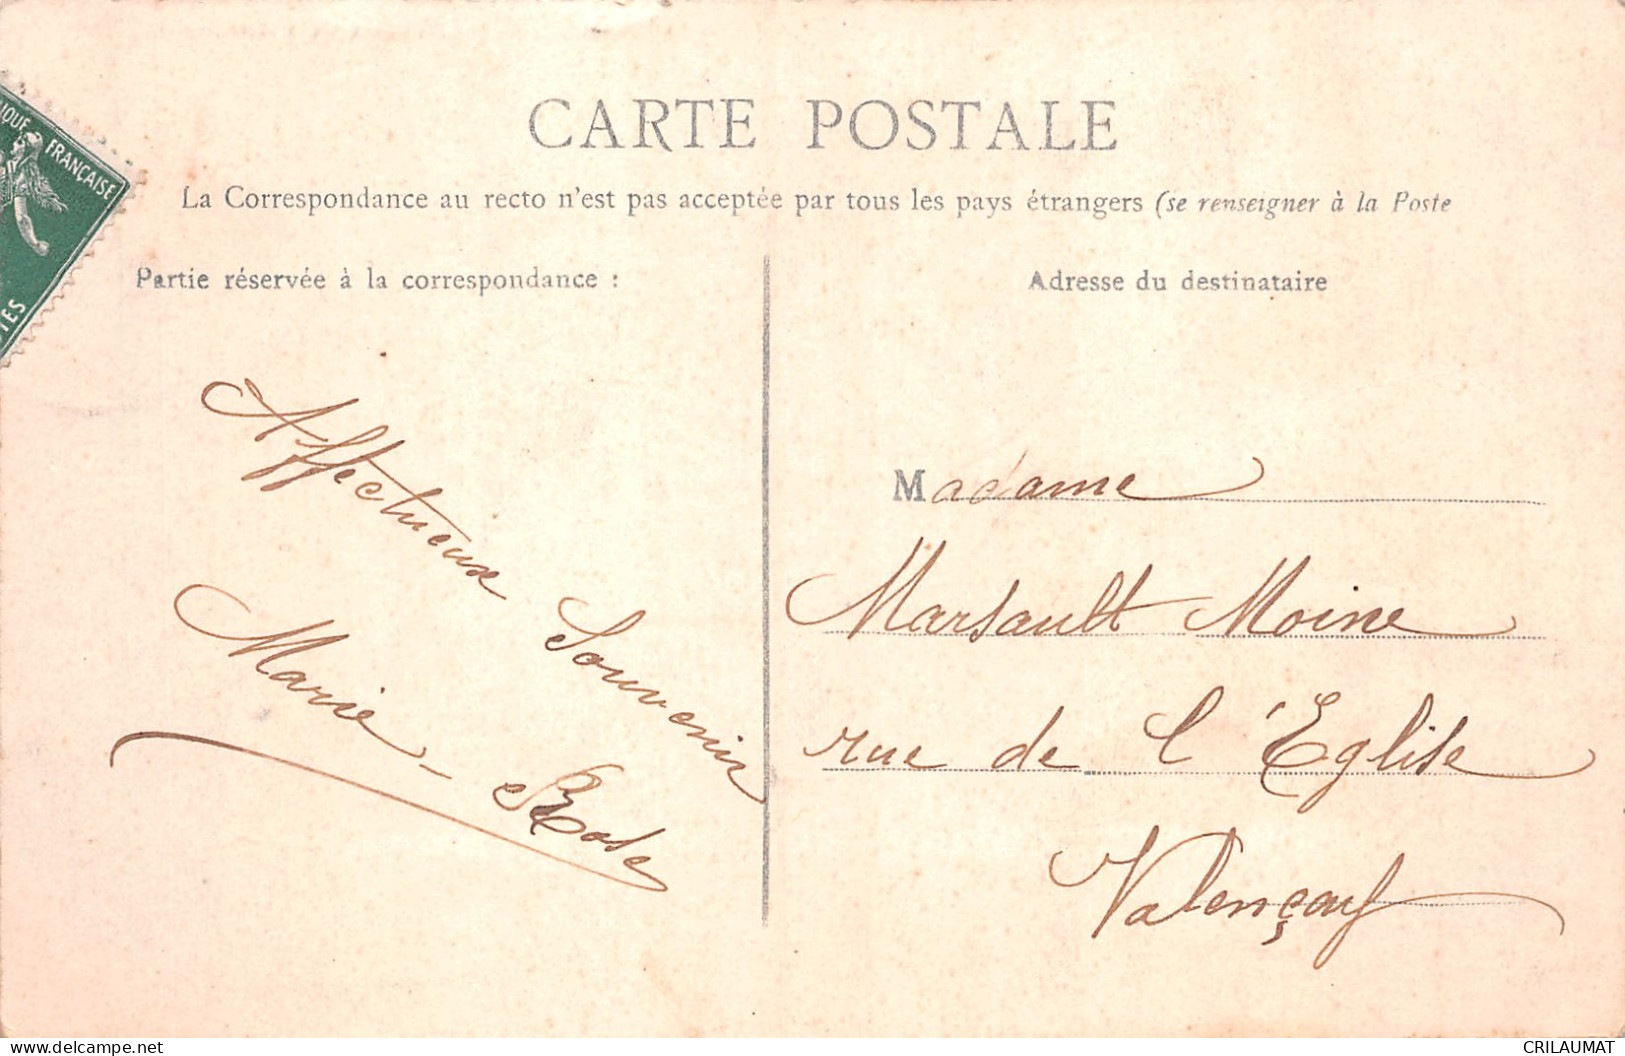 CARTE POSTALE
La Correspondance au recto n'est pas acceptée par tous les pays étrangers (se renseigner à la Poste
Partie réservée à la correspondance :
Adresse du destinataire
FRANÇAISE
Affectueux Souvenir
Marie-Rose
Madame
Marsault Moine
rue de l'Eglise
Valençay
delcampe.net
CRILAUMAT